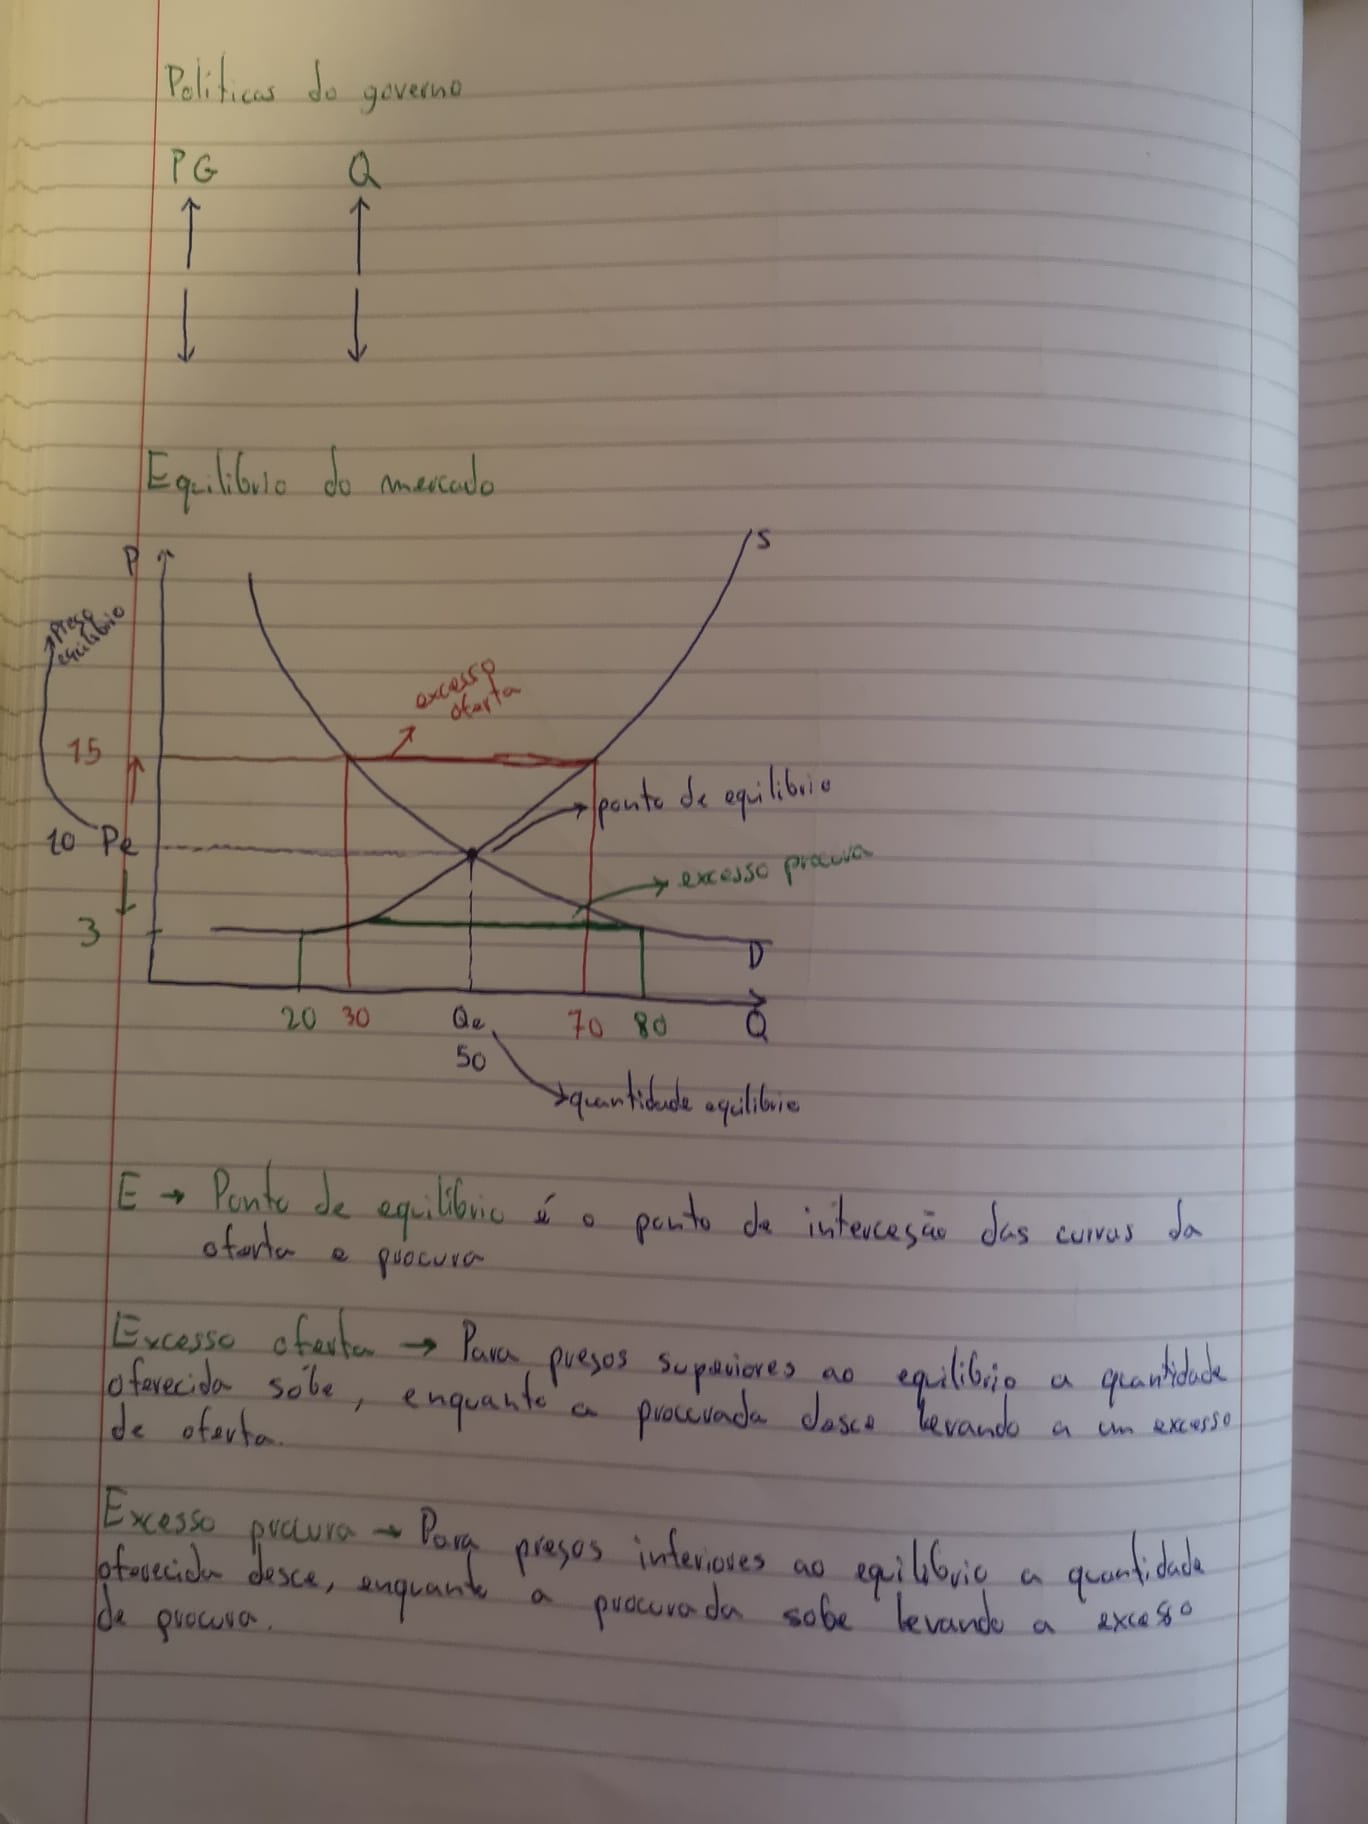 Politicas do governo
PG Q
Equilibrio do mercado
P
S
Preço
equilibrio
excesso
oferta
15
ponto de equilibrio
10 Pe
excesso procura
3
D
20 30 Qe 70 80 Q
50
quantidade equilibrio
E → Ponto de equilibrio é o ponto de interceção das curvas da
oferta e procura
Excesso oferta → Para preços superiores ao equilibrio a quantidade
oferecida sobe, enquanto a procurada desce levando a um excesso
de oferta.
Excesso procura → Para preços inferiores ao equilibrio a quantidade
oferecida desce, enquanto a procurada sobe levando a excesso
de procura.